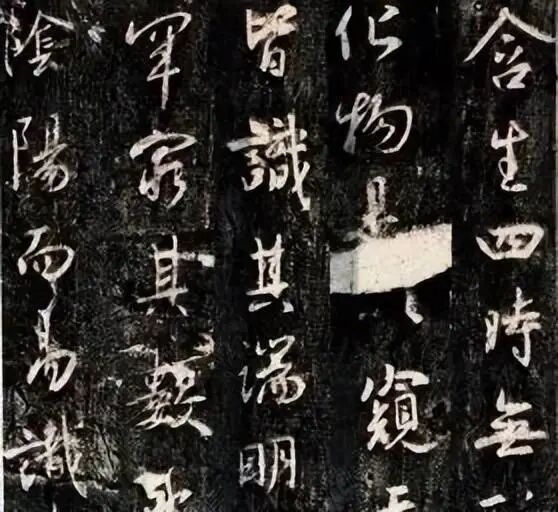 含生四時無
化物是窺
皆識其端明
罕窮其數
陰陽而易識